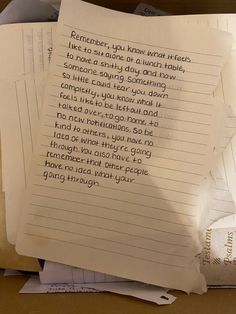 Remember, you know what it feels
like to sit alone at a lunch table,
to have a shitty day and how
someone saying something
so little could tear you down
completly, you know what it
feels like to be left out and
talked over, to go home to
no new notifications. So be
kind to others, you have no
idea of what they're going
through. You also have to
remember that other people
have no idea what your
going through.
Testament
Psalms